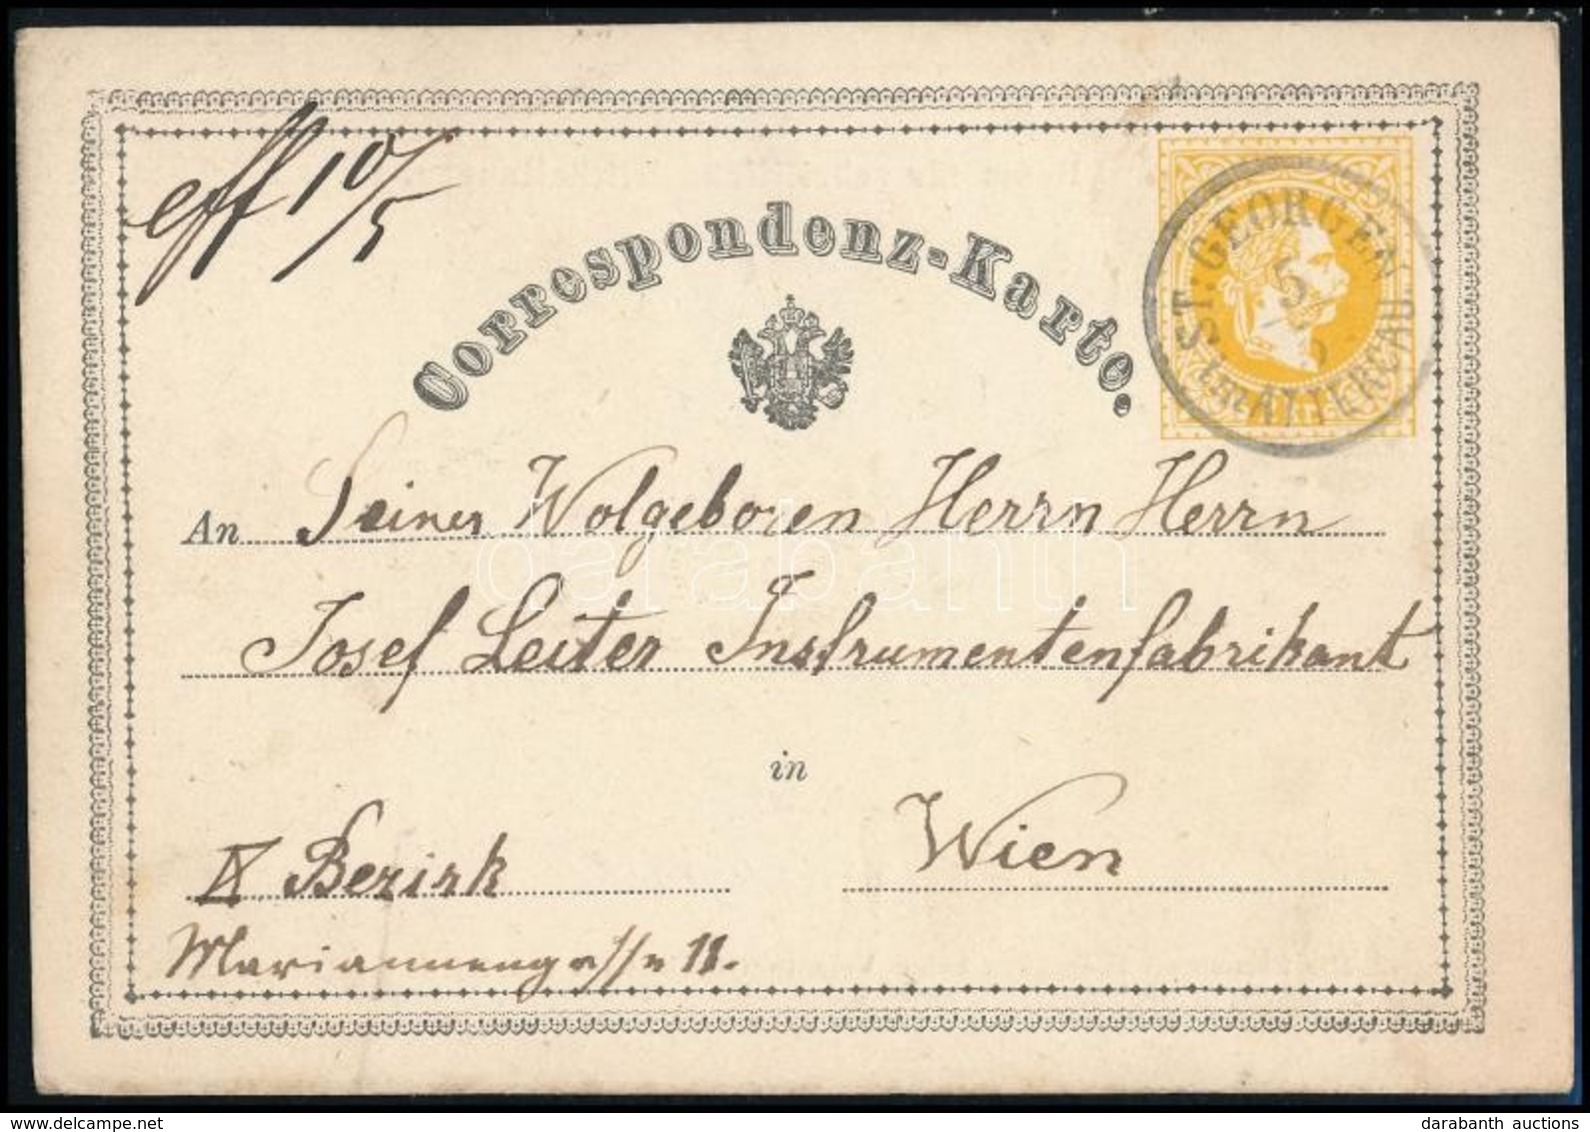 eff 10/5
Correspondenz-Karte.
ST. GEORGEN
5
im ATTERGAU.
An Seiner Wolgeboren Herrn Herrn
Josef Leiter Instrumentenfabrikant
in
IX Bezirk Wien
Mariannengasse 11.
darabanth
delcampe.net
darabanth auctions